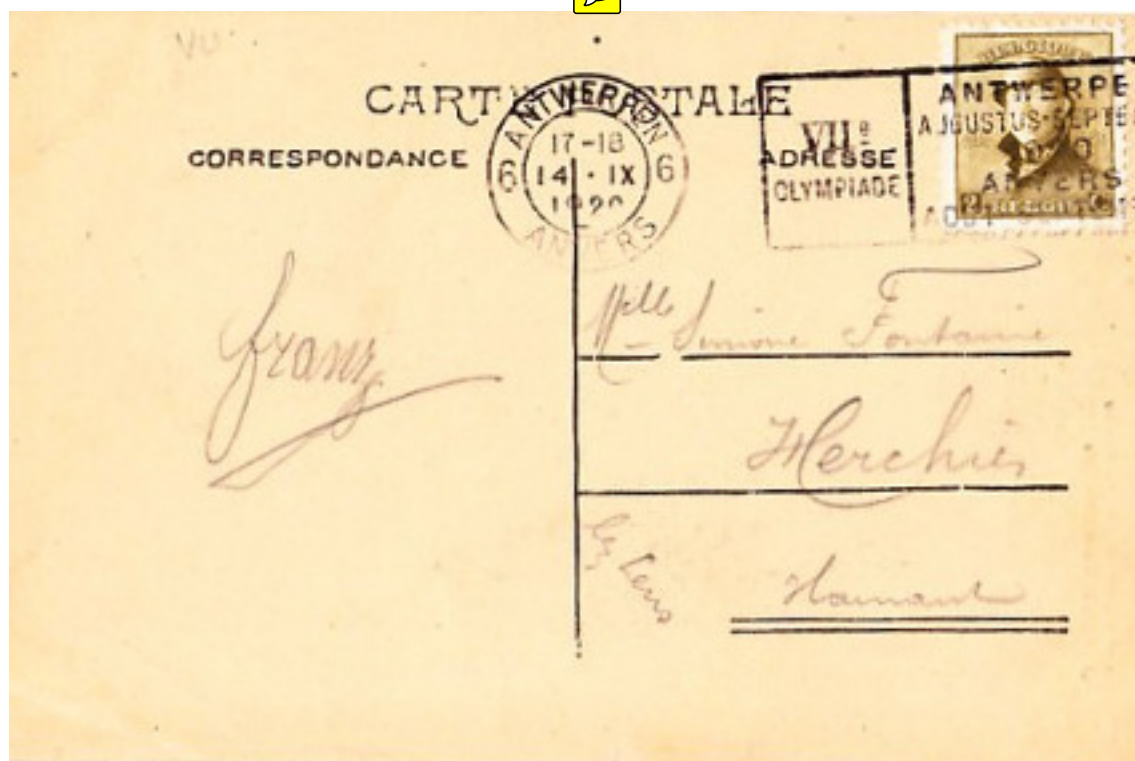 CARTE POSTALE
CORRESPONDANCE
ADRESSE
ANTWERPEN
6 17-18 6
14 · IX
1920
ANVERS
VIIe
OLYMPIADE
ANTWERPE
AUGUSTUS-SEPTE
1920
ANVERS
AOUT
BELGIQUE
franz
Mlle Simone Fontaine
Herchies
Lens
Hainaut